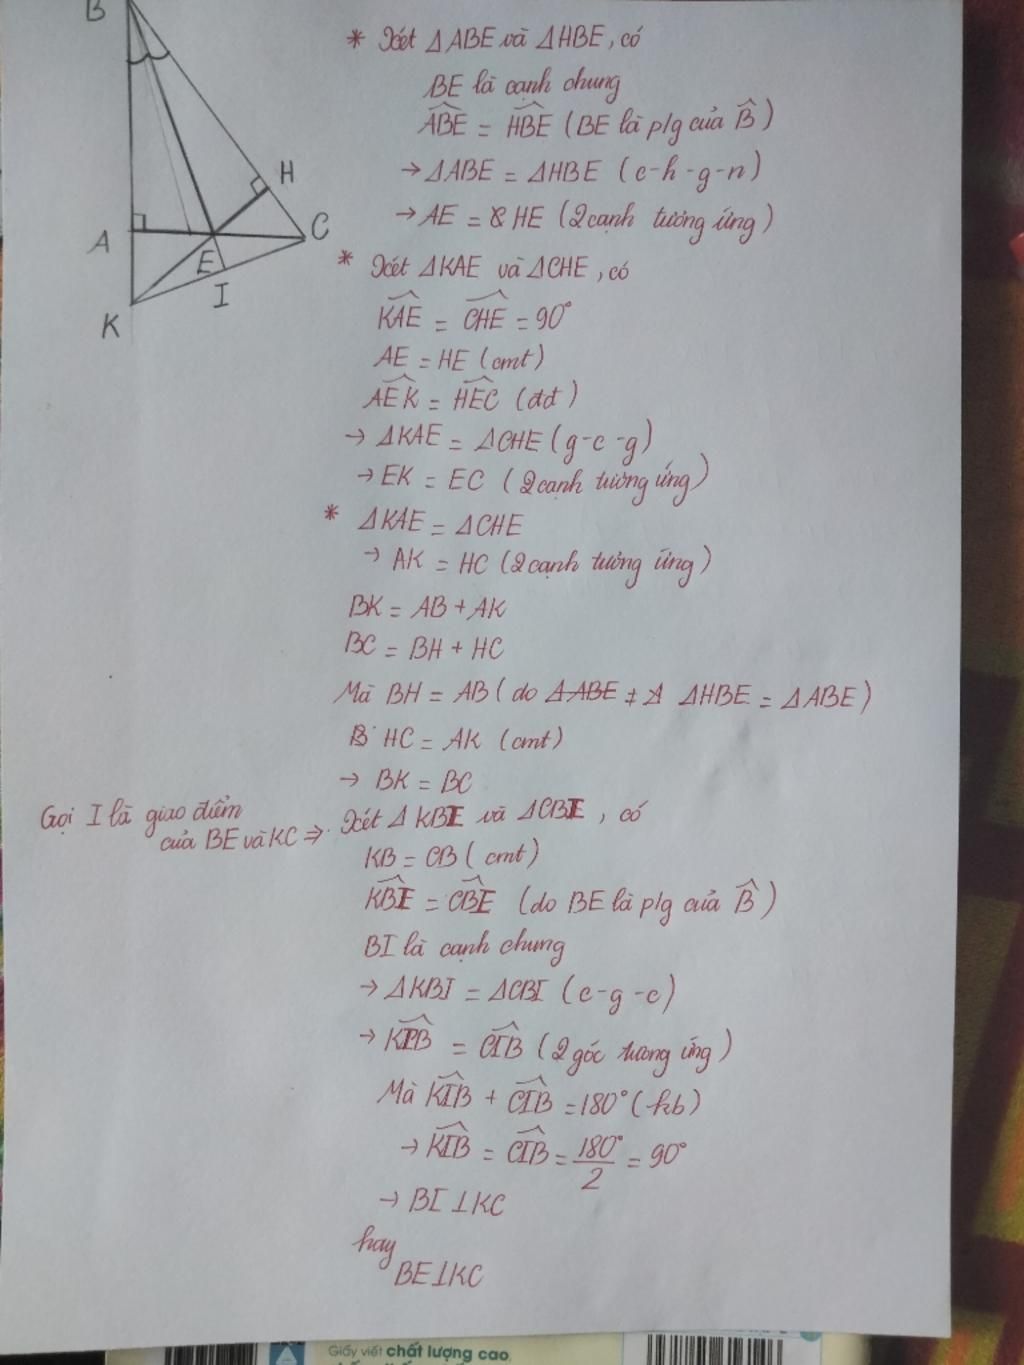 B
H
A
C
E
I
K
* Xét ΔABE và ΔHBE, có
BE là cạnh chung
ABE = HBE (BE là p/g của B)
→ ΔABE = ΔHBE (c-h-g-n)
→ AE = HE (2 cạnh tương ứng)
* Xét ΔKAE và ΔCHE, có
KAE = CHE = 90°
AE = HE (cmt)
AEK = HEC (đđ)
→ ΔKAE = ΔCHE (g-c-g)
→ EK = EC (2 cạnh tương ứng)
* ΔKAE = ΔCHE
→ AK = HC (2 cạnh tương ứng)
BK = AB + AK
BC = BH + HC
Mà BH = AB (do ΔABE ΔHBE = ΔABE)
HC = AK (cmt)
→ BK = BC
Gọi I là giao điểm
của BE và KC ⇒ Xét ΔKBI và ΔCBI, có
KB = CB (cmt)
KBI = CBI (do BE là p/g của B)
BI là cạnh chung
→ ΔKBI = ΔCBI (c-g-c)
→ KIB = CIB (2 góc tương ứng)
Mà KIB + CIB = 180° (kb)
→ KIB = CIB = 180°/2 = 90°
→ BI ⊥ KC
hay
BE ⊥ KC
Giấy viết chất lượng cao,